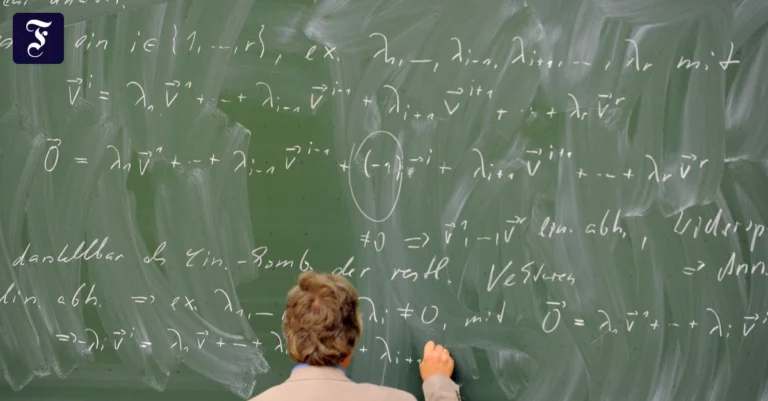 F
ein i ∈ {1, ..., r}, ex. λ₁, ..., λᵢ₋₁, λᵢ₊₁, ..., λᵣ mit
v⃗ⁱ = λ₁ v⃗¹ + ... + λᵢ₋₁ v⃗ⁱ⁻¹ + λᵢ₊₁ v⃗ⁱ⁺¹ + ... + λᵣ v⃗ʳ
0⃗ = λ₁ v⃗¹ + ... + λᵢ₋₁ v⃗ⁱ⁻¹ + (-1) v⃗ⁱ + λᵢ₊₁ v⃗ⁱ⁺¹ + ... + λᵣ v⃗ʳ
≠0 ⇒ v⃗¹, ..., v⃗ʳ lin. abh., Widersp
darstellbar als Lin.-Komb. der restl. Vektoren ⇒ Ann.
lin. abh. ⇒ ex. λ₁, ... λᵢ ≠ 0, mit 0⃗ = λ₁ v⃗¹ + ... + λᵢ v⃗
⇒ -λᵢ v⃗ⁱ = λ₁ v⃗¹ + ... + λ + λᵢ₊